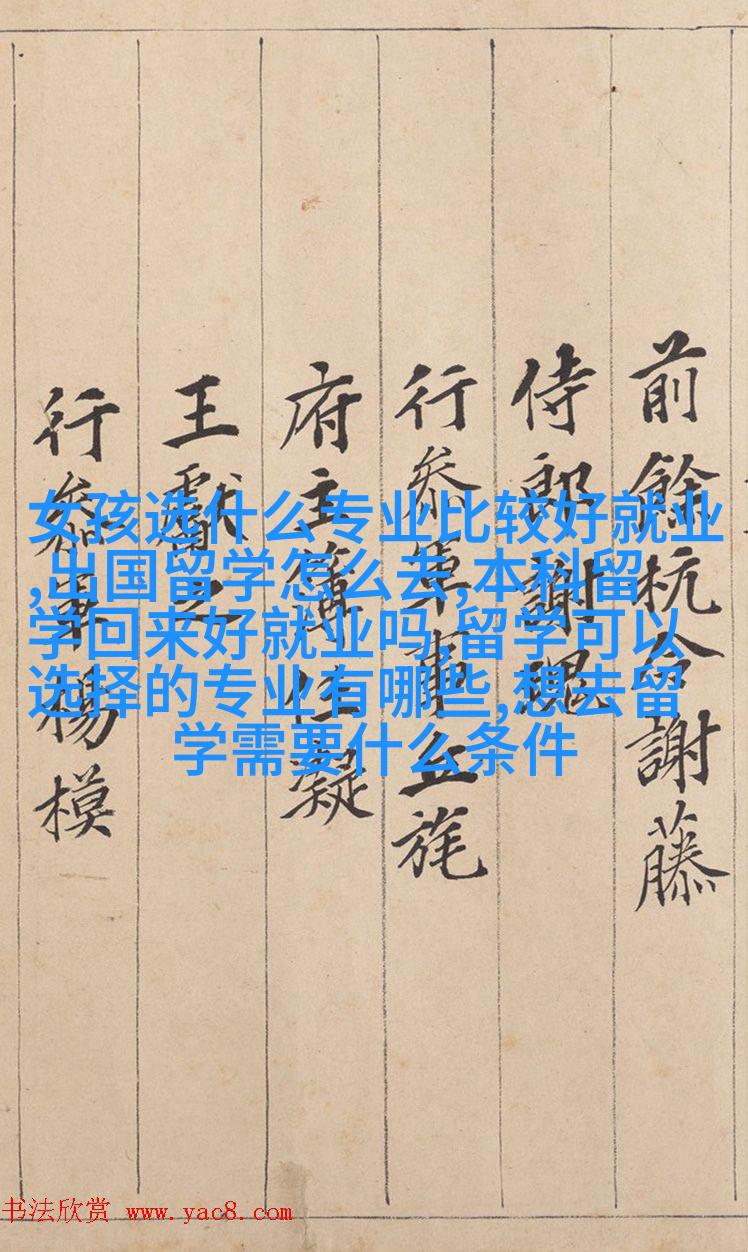 前餘杭令謝藤
侍郎謝瑰
行叅軍事丘旄
府主簿任凝
王獻之
行叅軍楊模
女孩选什么专业比较好就业
,出国留学怎么去,本科留
学回来好就业吗,留学可以
选择的专业有哪些,想去留
学需要什么条件
书法欣赏 www.yac8.com